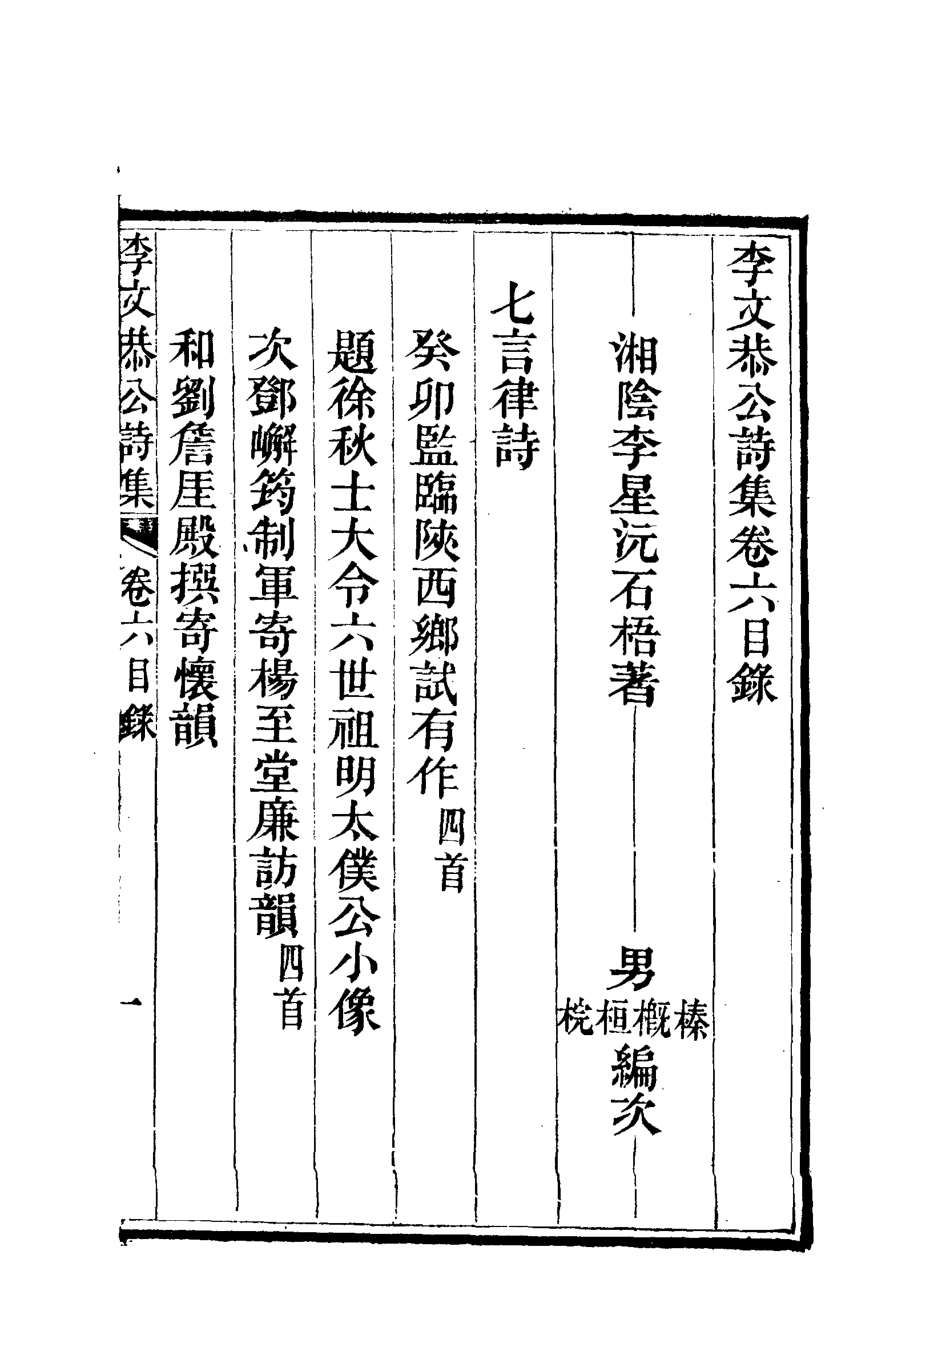 李文恭公詩集卷六目錄
湘陰李星沅石梧著　男榛概桓梡編次
七言律詩
癸卯監臨陝西鄉試有作四首
題徐秋士大令六世祖明太僕公小像
次鄧嶰筠制軍寄楊至堂廉訪韻四首
和劉詹厓殿撰寄懷韻
李文恭公詩集　卷六目錄　一